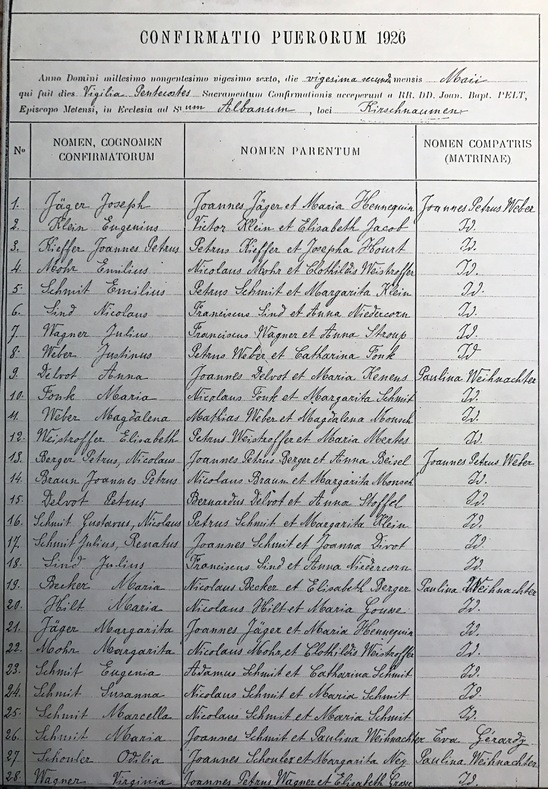 CONFIRMATIO PUERORUM 1926
Anno Domini millesimo nongentesimo vigesimo sexto, die vigesima secunda mensis Maii
qui fuit dies Vigilia Pentecostes Sacramentum Confirmationis acceperunt a RR. DD. Joan. Bapt. PELT,
Episcopo Metensi, in Ecclesia ad Stum Albanum, loci Kirschnaumen
No NOMEN, COGNOMEN CONFIRMATORUM NOMEN PARENTUM NOMEN COMPATRIS (MATRINAE)
1. Jäger Joseph Joannes Jäger et Maria Hennequin Joannes Petrus Weber
2. Klein Eugenius Victor Klein et Elisabeth Jacob Id.
3. Kieffer Joannes Petrus Petrus Kieffer et Josepha Hourt Id.
4. Mohr Emilius Nicolaus Mohr et Clothildis Weistroffer Id.
5. Schmit Emilius Petrus Schmit et Margarita Klein Id.
6. Sind Nicolaus Franciscus Sind et Anna Niedercorn Id.
7. Wagner Julius Franciscus Wagner et Anna Stroup Id.
8. Weber Justinus Petrus Weber et Catharina Fonk Id
9. Delvot Anna Joannes Delvot et Maria Kenens Paulina Weihnachter
10. Fonk Maria Nicolaus Fonk et Margarita Schmit Id.
11. Weber Magdalena Mathias Weber et Magdalena Id.
12. Weistroffer Elisabeth Petrus Weistroffer et Maria Mertes Id.
13. Berger Petrus, Nicolaus Joannes Petrus Berger et Anna Beisel Joannes Petrus Weber
14. Braun Joannes Petrus Nicolaus Braun et Margarita Id.
15. Delvot Petrus Bernardus Delvot et Anna Stoffel Id.
16. Schmit Gustavus, Nicolaus Petrus Schmit et Margarita Klein Id.
17. Schmit Julius, Renatus Joannes Schmit et Joanna Divot Id.
18. Sind Julius Franciscus Sind et Anna Niedercorn Id.
19. Becker Maria Nicolaus Becker et Elisabeth Berger Paulina Weihnachter
20. Hilt Maria Nicolaus Hilt et Maria Id.
21. Jäger Margarita Joannes Jäger et Maria Hennequin Id.
22. Mohr Margarita Nicolaus Mohr, et Clothildis Weistroffer Id.
23. Schmit Eugenia Adamus Schmit et Catharina Schmit Id.
24. Schmit Susanna Nicolaus Schmit et Maria Schmit Id.
25. Schmit Marcella Nicolaus Schmit et Maria Schmit Id.
26. Schmit Maria Joannes Schmit et Paulina Weihnachter Eva Gérardy
27. Schouler Odilia Joannes Schouler et Margarita Ney Paulina Weihnachter
28. Wagner Virginia Joannes Petrus Wagner et Elisabeth Grosse Id.